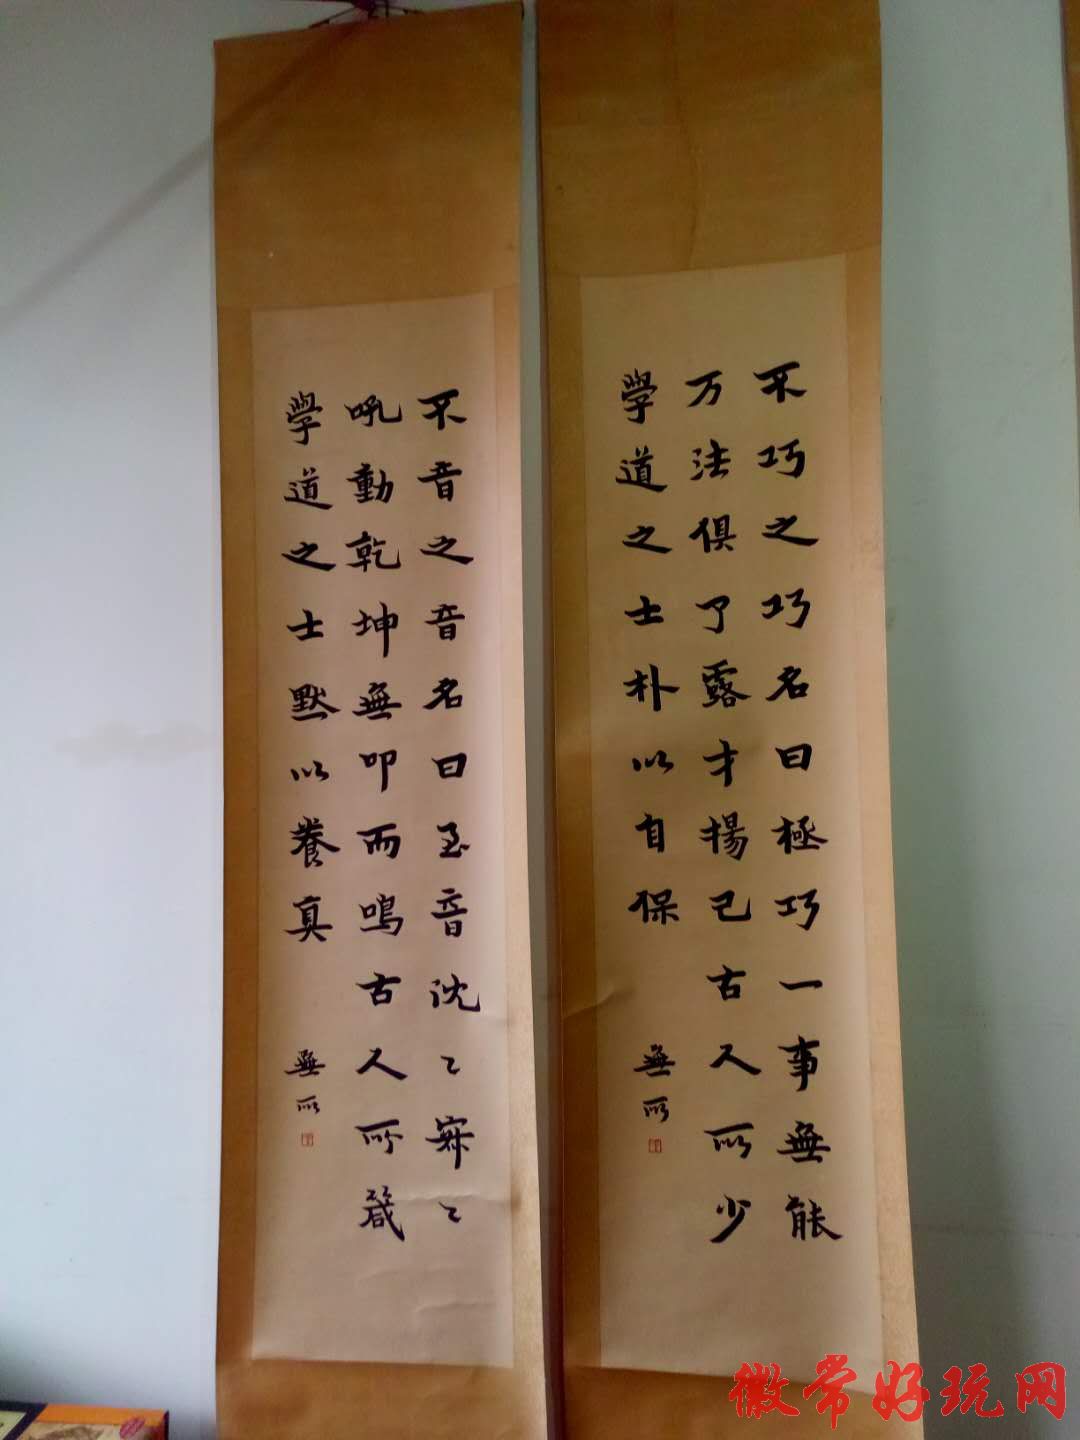 不巧之巧名曰極巧一事無能
万法俱了露才揚己古人所少
學道之士朴以自保
無所
不音之音名曰至音沈〻寂〻
吼動乾坤無叩而鳴古人所箴
學道之士默以養真
無所
徽常好玩网